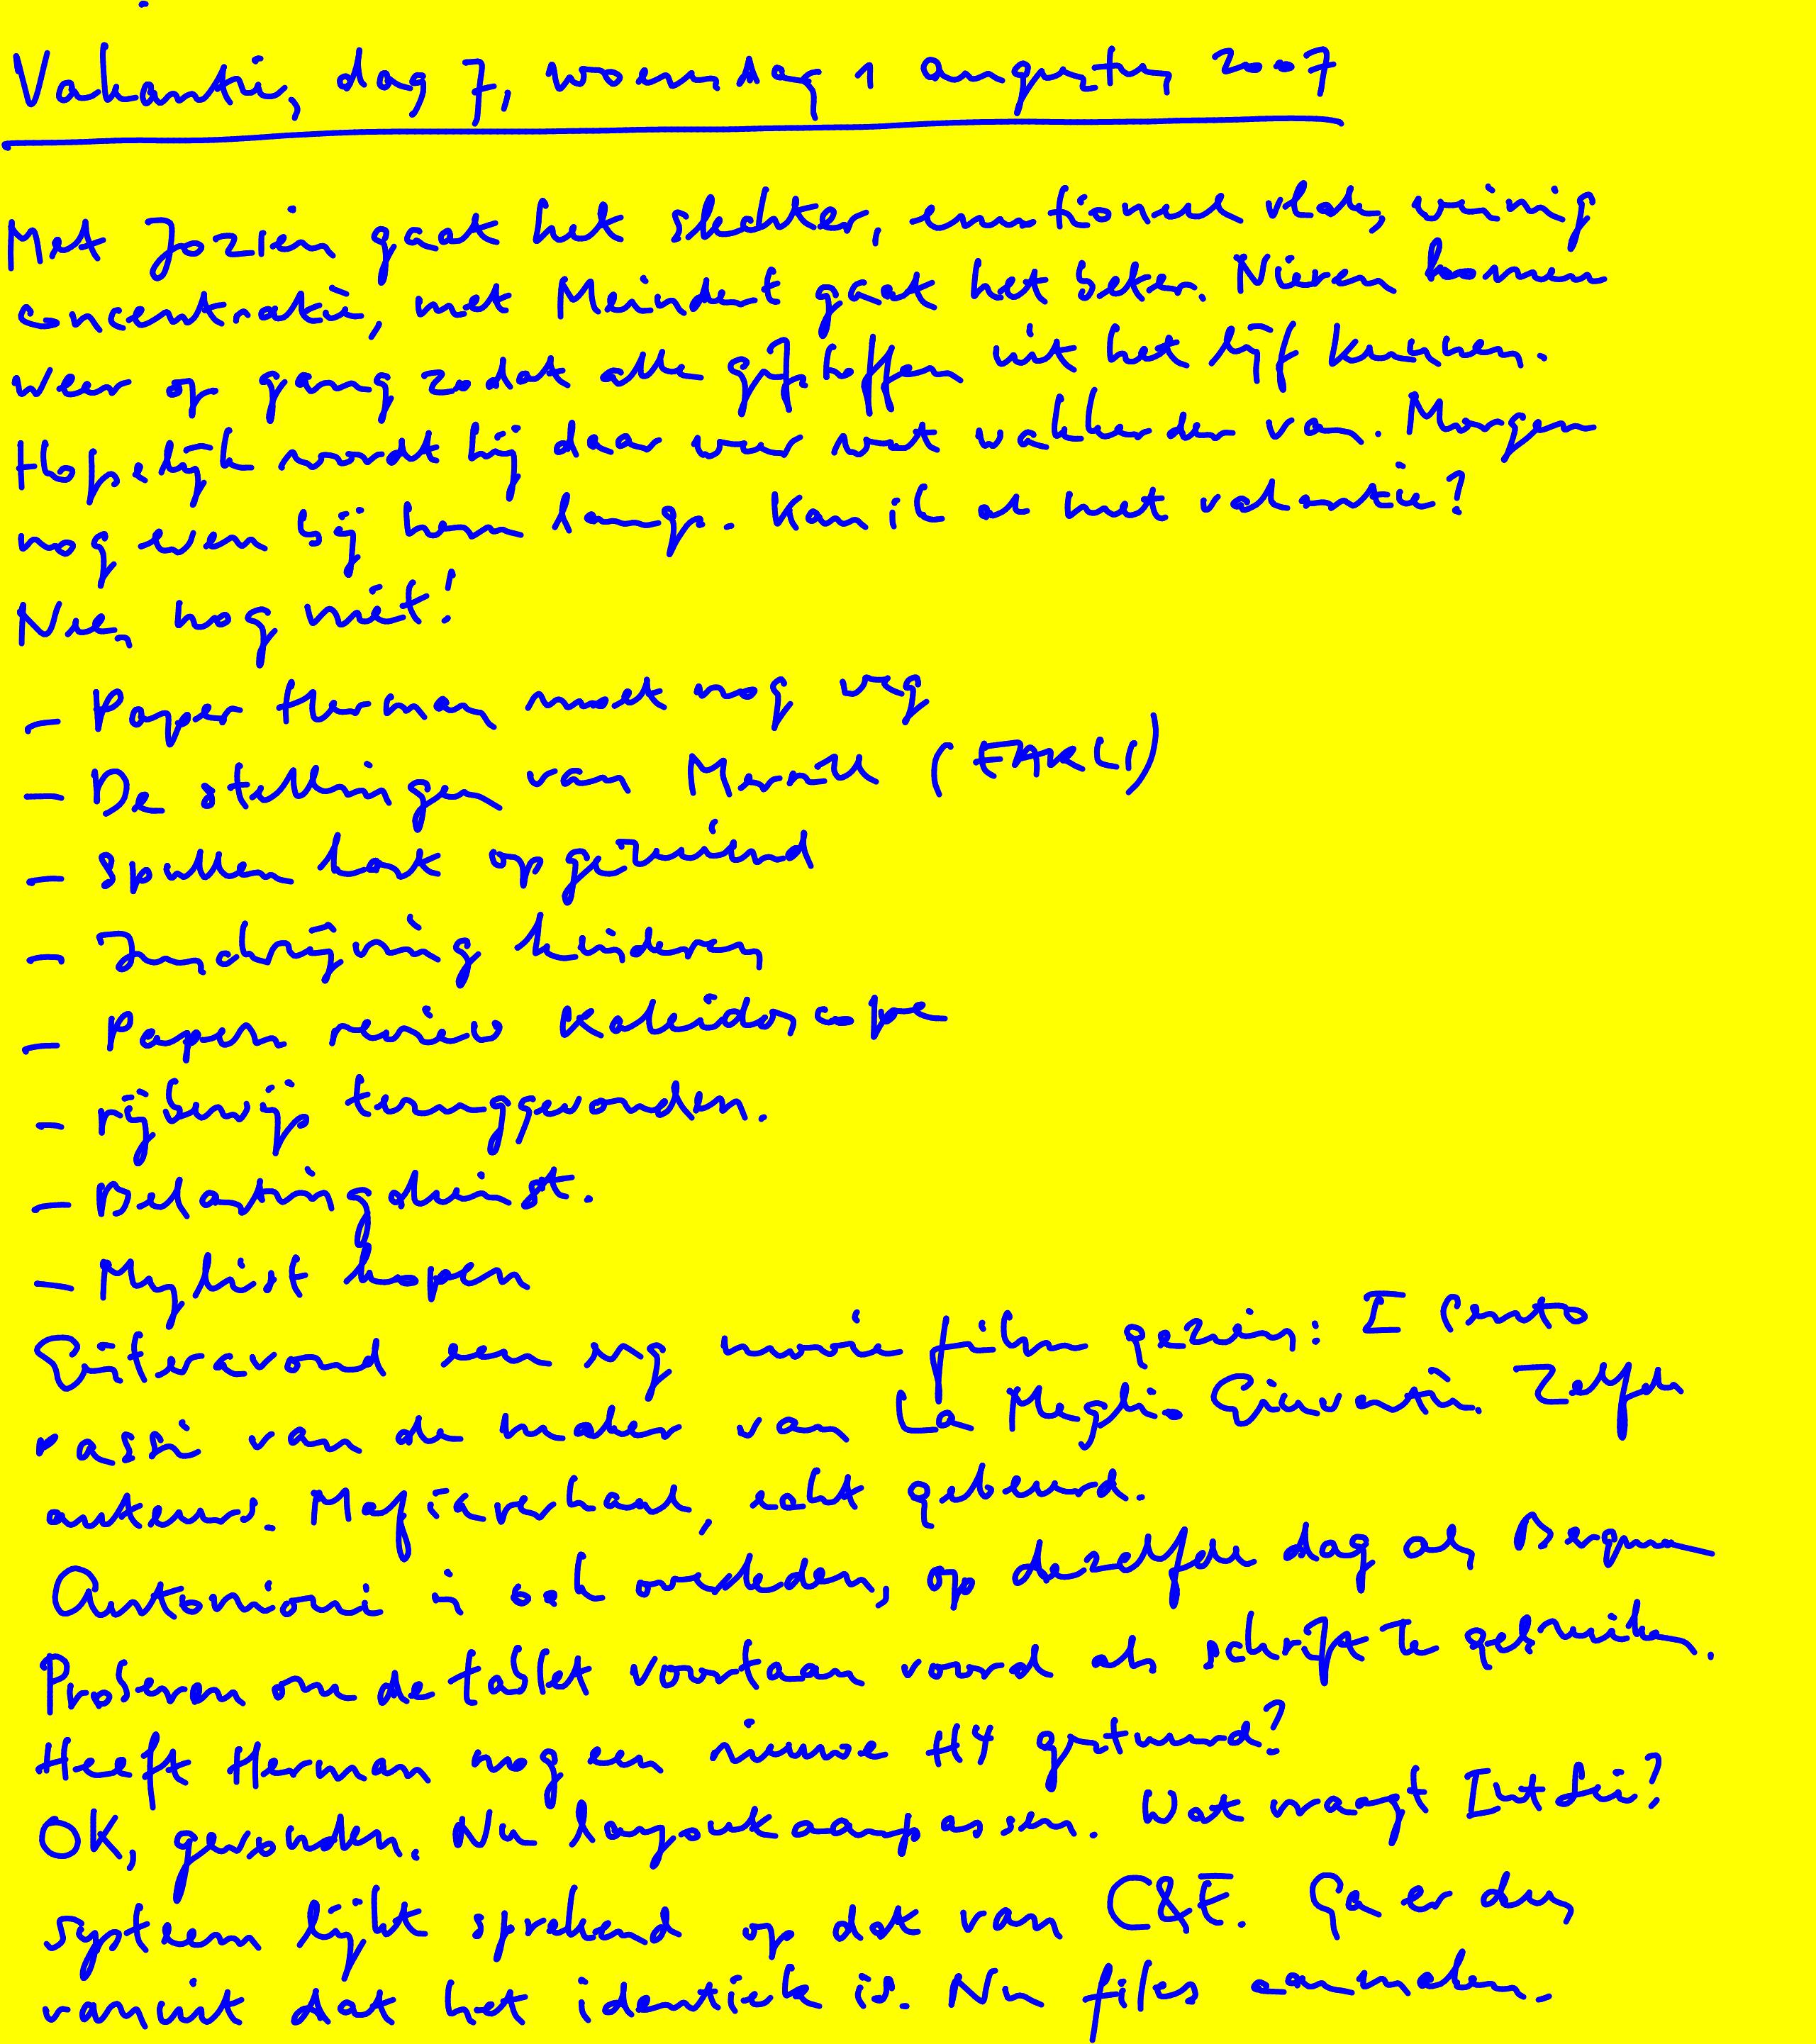 Vakantie, dag 7, woensdag 1 augustus 2007
Met Jozien gaat het slechter, emotioneel vlak, weinig
concentratie, met Meindert gaat het beter. Nieren komen
weer op gang zodat alle gifstoffen uit het lijf kunnen.
Hopelijk wordt hij daar weer wat wakkerder van. Morgen
nog even bij hem langs. Kan ik al met vakantie?
Nee, nog niet!
- Paper Herman moet nog weg
- De stellingen van Merrill (EARLI)
- Spullen laat opgeruimd
- Inschrijving kinderen
- Papers review Kaleidoscope
- rijbewijs teruggevonden.
- Belastingdienst.
- Mylist kopen
Gisteravond een erg mooie film gezien: I Cento
Passi van de maker van La Meglio Gioventu. Zelfde
auteurs. Mafiaverhaal, echt gebeurd.
Antonioni is ook overleden, op dezelfde dag als Bergman
Proberen om de tablet voortaan vooral als schrift te gebruiken.
Heeft Herman nog een nieuwe H4 gestuurd?
OK, gevonden. Nu layout aanpassen. Wat vraagt
systeem lijkt sprekend op dat van C&E. Ga er dus
vanuit dat het identiek is. Nu files aanmaken.